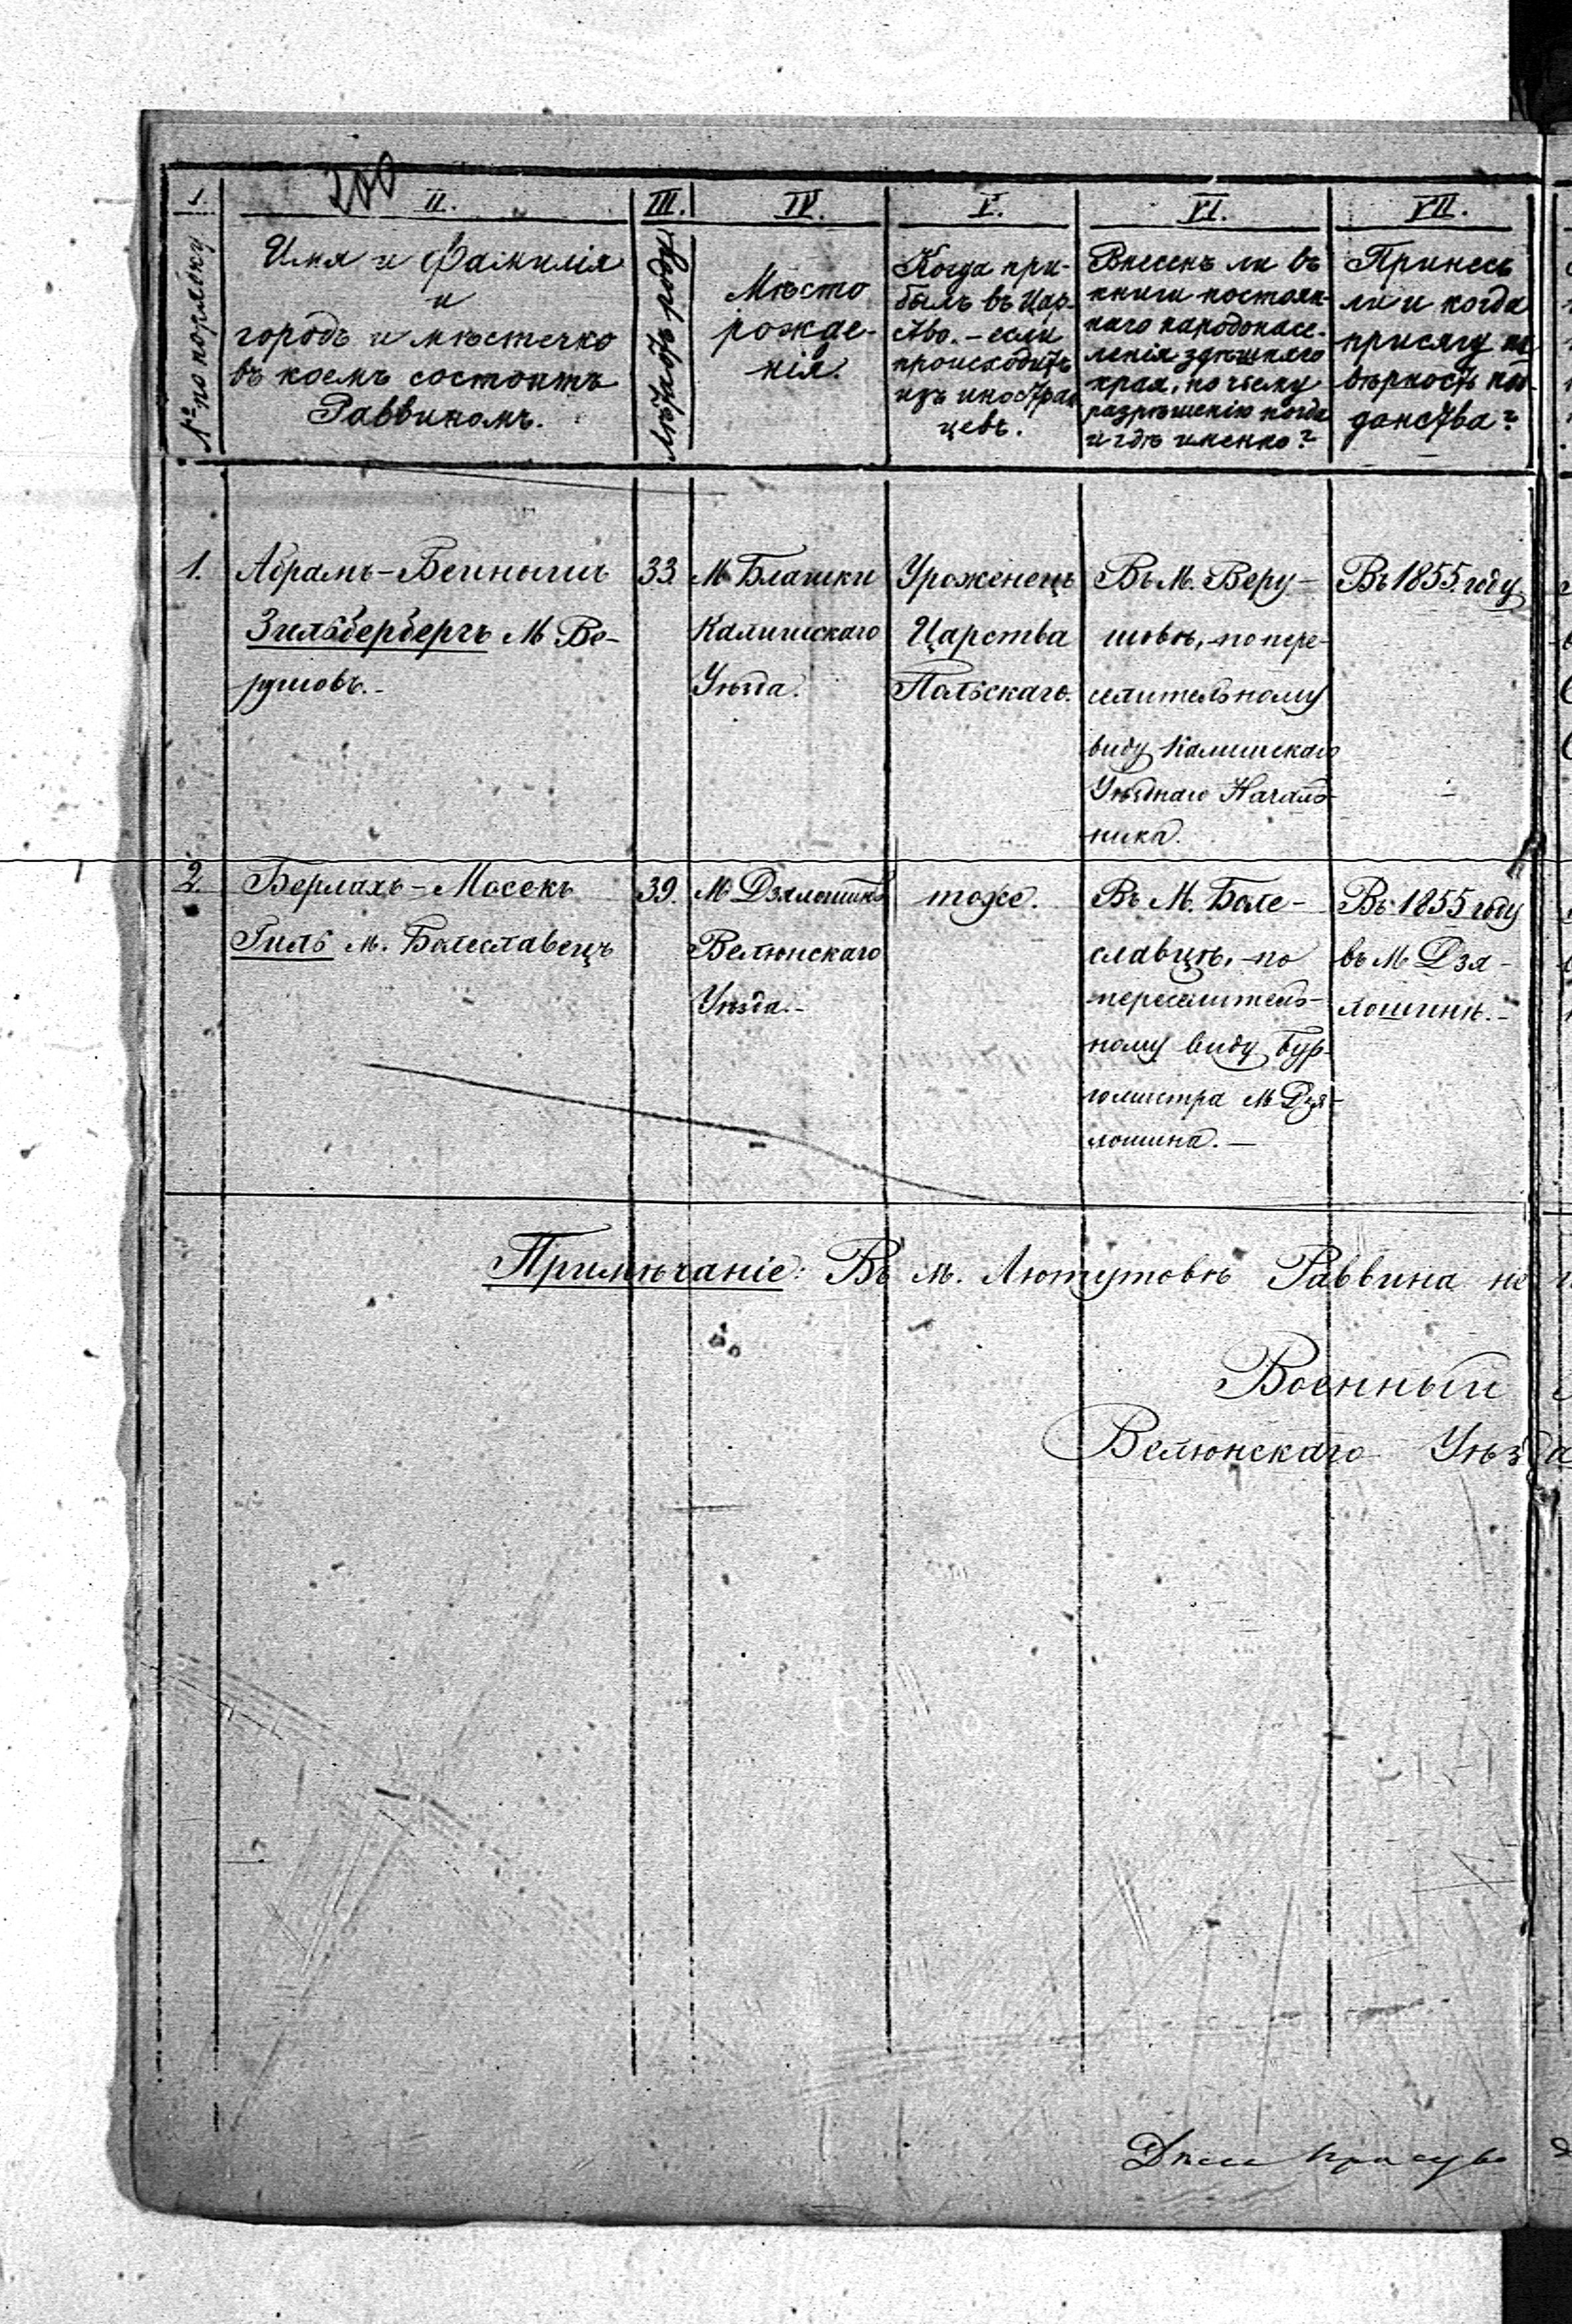 200
I.
№ по порядку
II.
Имя и Фамилія
и
городъ и мѣстечко
въ коемъ состоитъ
Раввиномъ.
III.
Лѣтъ отъ роду
IV.
Мѣсто
рожде-
нія.
V.
Когда при-
былъ въ Цар-
ство. - если
происходитъ
изъ иностран
цевъ.
VI.
Внесенъ ли въ
книги постоян-
наго народонасе-
ленія здѣшняго
края, по чьему
разрѣшенію когда
и гдѣ именно?
VII.
Принесъ
ли и когда
присягу на
вѣрность под
данства?
1.
Абрамъ-Бениминъ
Зильберберъ М. Ве-
рушовъ.-
33.
М. Блашки
Калишскаго
Уѣзда.
Уроженецъ
Царства
Польскаго.
Въ М. Веру-
шовѣ, по пере-
селительному
виду Калишскаго
Уѣзднаго Началь-
ника.
Въ 1855. году
2.
Берлахъ-Мосекъ
Гиль м. Болеславецъ
39.
М. Дзялошинъ
Велюнскаго
Уѣзда.-
тоже.
Въ М. Боле-
славцѣ, по
переселитель-
ному виду Бур-
гомистра М. Дзя-
лошина.-
Въ 1855 году
въ М. Дзя-
лошинѣ.-
Примѣчаніе: Въ м. Лютутовѣ Раввина не
Военный
Велюнскаго Уѣзда